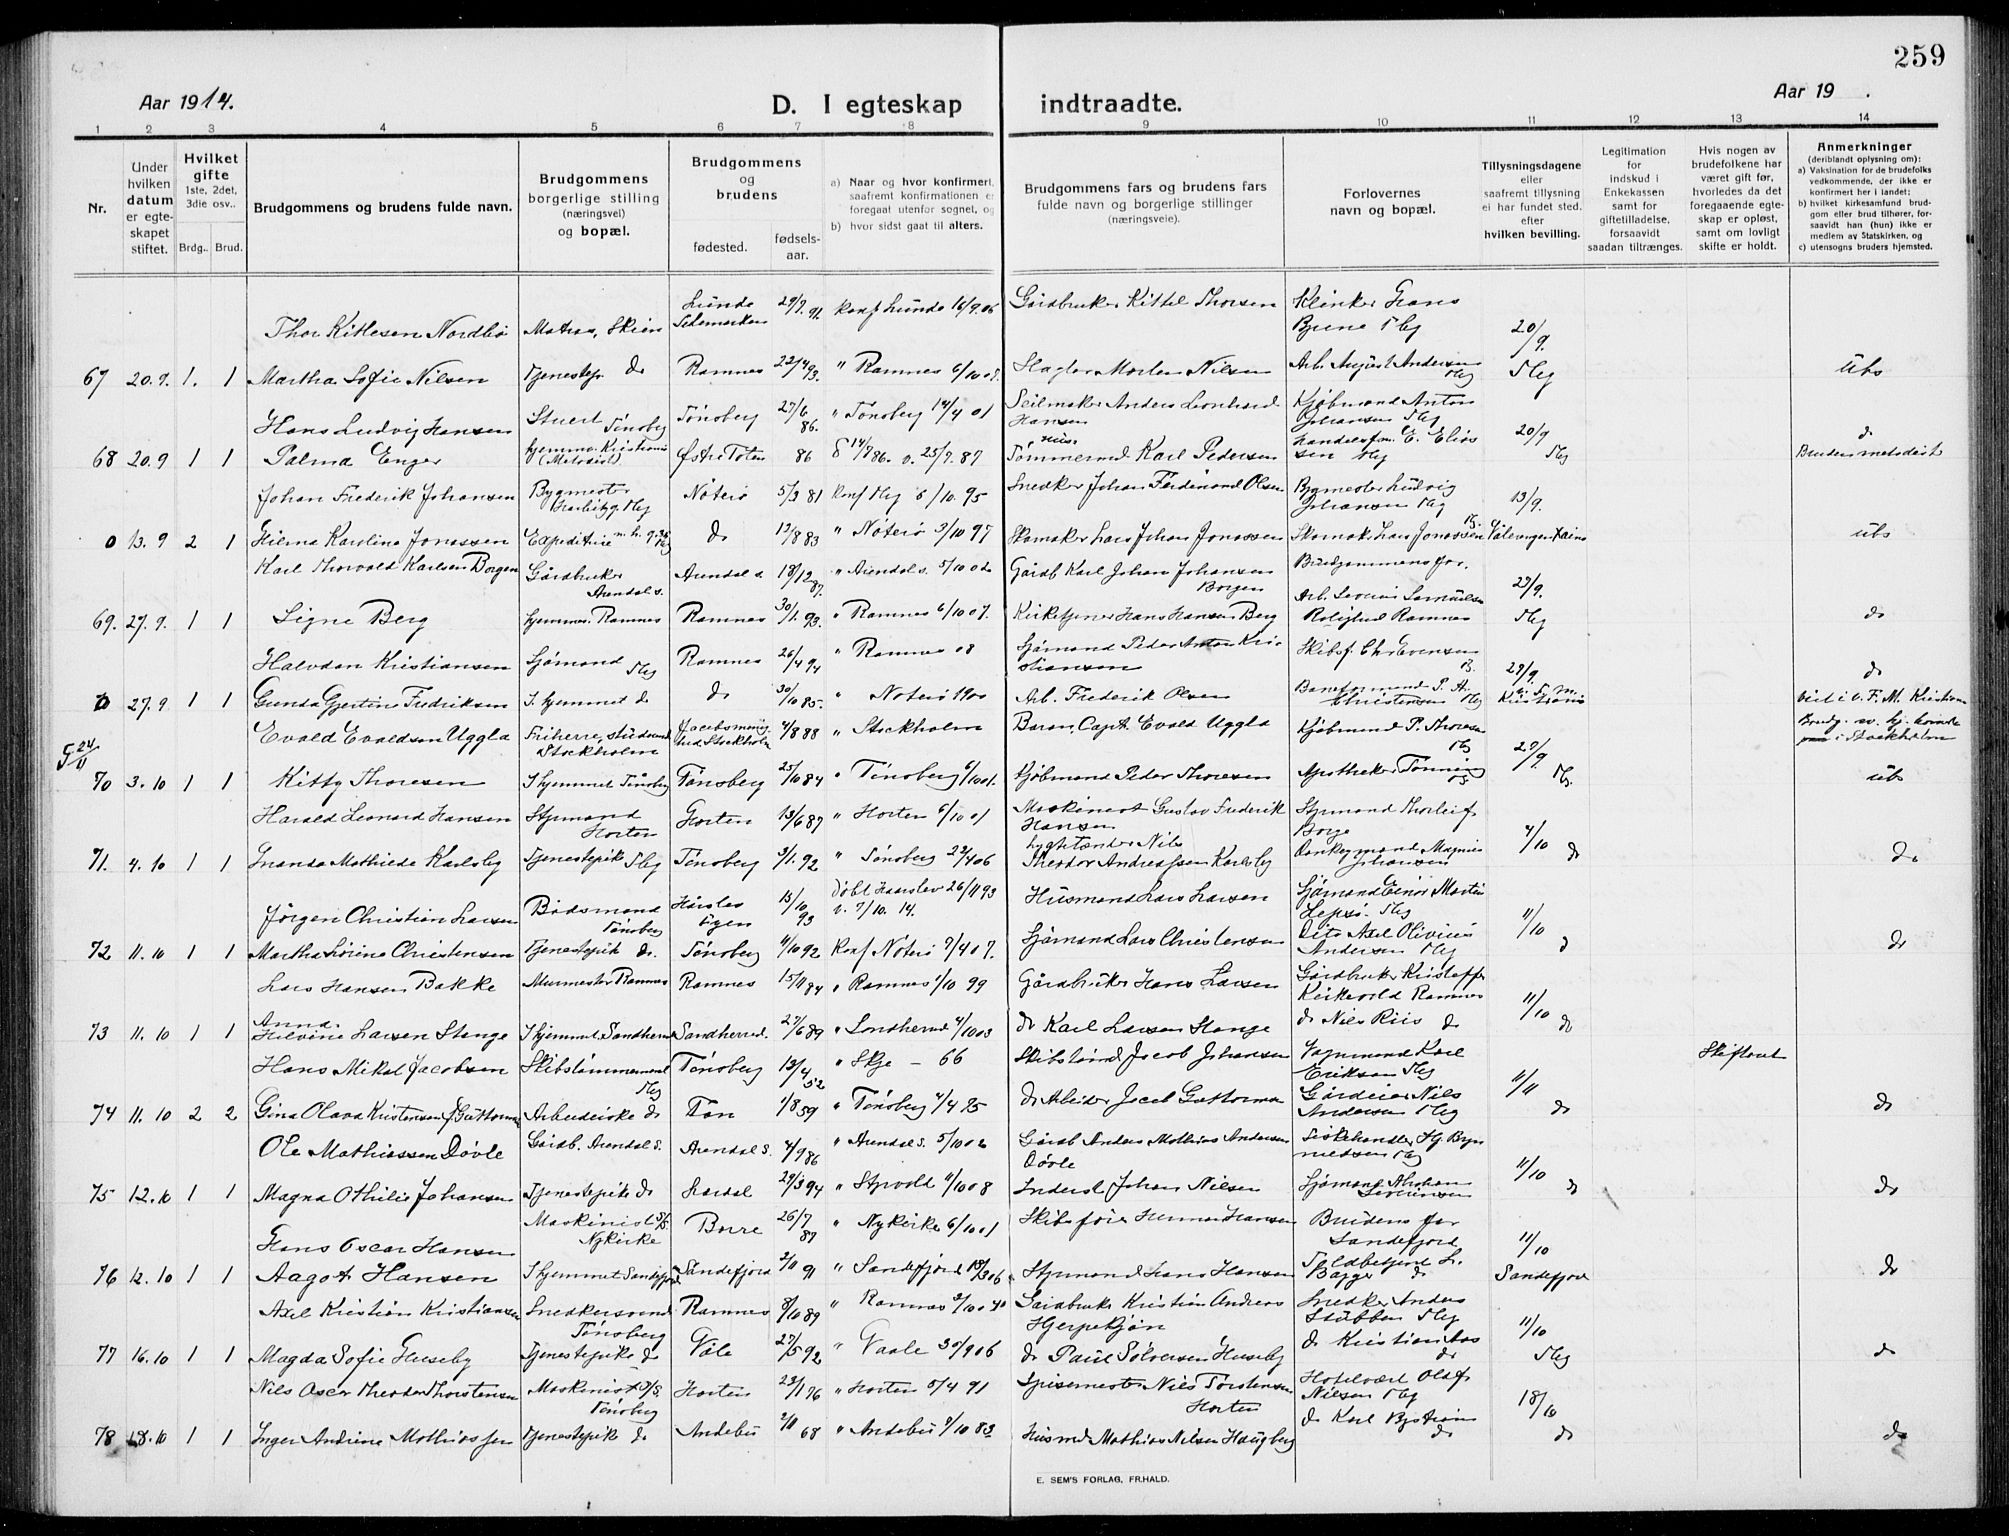 259
Aar 1914.
D. I egteskap indtraadte.
Aar 19 .
1 2 3 4 5 6 7 8 9 10 11 12 13 14
Nr.
Under hvilken datum er egteskapet stiftet.
Hvilket gifte 1ste, 2det, 3die osv..
Brdg.. Brud.
Brudgommens og brudens fulde navn.
Brudgommens borgerlige stilling (næringsvei) og bopæl.
Brudgommens og brudens
fødested. fødselsaar.
a) Naar og hvor konfirmert, saafremt konfirmationen e foregaat utenfor sognet, og
b) hvor sidst gaat til alters.
Brudgommens fars og brudens fars fulde navn og borgerlige stillinger (næringsveie).
Forlovernes navn og bopæl.
Tillysningsdagene eller saafremt tillysning ei har fundet sted. efter hvilken bevilling.
Legitimation for indskud i Enkekassen samt for giftetilladelse, forsaavidt saadan tiltrænges.
Hvis nogen av brudefolkene har været gift før, hvorledes da det foregaaende egteskap er opløst, samt om lovligt skifte er holdt.
Anmerkninger (deriblandt oplysning om):
a) Vaksination for de brudefolks vedkommende, der ikke er konfirmert her i landet;
b) hvilket kirkesamfund brudgom eller brud tilhører, forsaavidt han (hun) ikke er medlem av Statskirken, og
c) utensogns bruders hjemsted.
Thor Kittlesen Nordbø Matros, Skien Lunde Telemarken 29/7 92 Konf Lunde 16/9.06 Gårdbruker Kittel Thorsen Klinker Hans Brune Tbg 20/9.
67 20.9. 1. 1 Martha Sofie Nilsen Tjenestep. do Ramnes 22/4 93. " Ramnes 6/10 07. Slagter Morten Nilsen Arb. August Andersen Tbg Tbg Ubs
Hans Ludvig Hansen Stuert Tönsberg Tönsberg 27/6 86. " Tönsberg 14/4 01 Seilmaker Anders Leonhard Hansen Kjøbmand Anton Johansen Tbg 20/9
68 20.9 1 1 Palma Enger hjemme Kristiania (Metodist) Østre Toten 86 d 14/7 86. v. 25/7. 87 Tømmermd Karl Pedersen Handelsfm. E. Eliassen Tbg Tbg do Bruden metodist
Johan Frederik Johansen Bygmester Tbg Nöterö 5/3 81 Konf Tbg 6/10. 95 Snedker Johan Ferdinand Olsen Bygmester Ludvig Johansen Tbg 13/9.
0 13.9 2 1 Hilma Karoline Jonassen Expeditrice do 12/8 83 " Nöterö 3/10 97 Skomaker Lars Johan Jonassen Skomak. Lars Jonassen Vålerengen Kra ubs
Karl Thorvald Karlsen Borgen Gårdbruker Arendal s. Arendal s. 18/12 87. " Arendal s. 5/10 02 Gårdb Karl Johan Johansen Borgen Brudgommens far. 27/9.
69. 27.9. 1 1 Signe Berg hjemme. Ramnes Ramnes 30/1. 93. " Ramnes 6/10 07. Kirketjener Hans Hansen Berg Arb. Severin Samuelsen Rolighed Ramnes Tbg do
Halvdan Kristiansen Sjømand Tbg Ramnes 26/4 94 " Ramnes 08 Sjømand Peder Anton Kristiansen Skibsf. Chr Evensen 27/9. do
0 27.9 1 1 Gunda Gjertine Fredriksen I hjemmet do do 30/10 85. " Nöterö 1900 Arb. Frederik Olsen P. A. Christensen Tbg Kristiania Viet i v. F. M. Kristiania
Evald Evaldsen Uggla Friherre, studerende Stockholm Jacobs menig hed Stockholm 4/8 88 " Stockholm Baron, Capt. Evald Uggla Kjøbmand P. Thoresen Tbg 27/9. Brudg. av hj. komst i Stockholm
70 3.10 1 1 Kitty Thoresen I hjemmet Tönsberg Tönsberg 25/10 84 " Tönsberg 6/10 01. Kjøbmand Peder Thoresen Apotheker Tönning Tbg. ubs
Harald Leonard Hansen Styrmand Horten Horten 13/6 87 " Horten 6/10 01 Maskinist Gustav Frederik Hansen Styrmand Thorleif Borge 4/10
71. 4.10 1 1 Inanda Mathilde Karlsby Tjenestepik Tbg Tönsberg 3/1. 92 " Tönsberg 22/4 06 Lygtetænder Nils Theodor Andreassen Karlsby Donkeymand Magnus Johansen do do
Jörgen Christian Larsen Bådsmand Tönsberg Hårslev Fyen 13/10 93 Döbt Haarslev 26/11 93 v. 7/10. 14. Husmand Lars Larsen Sjömand Einar Martin Lepsö. Tbg 11/10
72 11.10 1 1 Martha Lovine Christensen Tjenestepik do. Tönsberg 11/10 92 Konf Nöterö 7/4 07. Sjömand Lars Christensen Dito Axel Olivius Andersen Tbg do do
Lars Hansen Bakke Murmester Ramnes Ramnes 15/11 84 " Ramnes 1/10 99 Gårdbruker Hans Larsen Gårdbruker Kristoffer Kirkevold Ramnes 11/10
73 11.10 1 1 Anna Helvine Larsen Stange I hjemmet Sandherred Sandherred. 27/6 89 " Sandherred 4/10 03 do Karl Larsen Stange do Nils Riis do do
Hans Mikal Jacobsen Skibstømmermand Tbg Tönsberg 13/4 52 " Skje – 66 Skibstømd Jacob Johansen Vognmand Karl Eriksen Tbg 11/11 Skifteret
74 11.10 2 2 Gina Olava Kristensen f Guttorms Arbeiderske do Tøn 1/8 59 " Tönsberg 4/4 75 do Arbeider Jacob Guttormsen Gårdeier Nils Andersen Tbg do do
Ole Mathiassen Dövle Gårdb. Arendal s. Arendal s. 4/9 86 " Arendal s. 5/10 02 Gårdb Anders Mathias Andersen Dövle Fiskehandler Tbg 11/10
75 12.10 1 1 Magna Othilie Johansen Tjenestepik do Lardal 29/3 94 " Styrvold 11/10 08 Inderst Johan Nilsen Sjömand Abraham Severinsen do do
Hans Oscar Hansen Maskinist D/S. Nykirke Borre 26/7 87 " Nykirke 6/10 01 Skibsfører Herman Hansen Brudens far Sandefjord 11/10
76 12.10 1 1 Aagot Hansen I hjemmet Sandefjord Sandefjord 2/11 91 " Sandefjord 18/3 06 Styrmand Hans Hansen Toldbetjent L. Bagge do Sandefjord do
Axel Kristian Kristiansen Snedkersvend Tönsberg Ramnes 8/10 89 " Ramnes 2/10 04 Gårdbruker Kristian Andreas Hjerpekjön Snedker Anders Stubben Tbg 11/10
77 16.10 1 1 Magda Sofie Huseby Tjenestepike do Våle 27/5 92 " Vaale 30/9 06 do Paul Sölversen Huseby do Kristian Aas do Tbg do
Nils Oscar Theodor Thorstensen Maskinist D/S. Tönsberg Horten 23/1 76 " Horten 5/4 91 Spisemester Nils Torstensen Horten Hotelvært Olaf Nilsen Tbg 18/10
78 18.10 1 1 Inger Andrine Mathiassen Tjenestepik do Andebu 2/11 68 " Andebu 7/10 83 Husmd Mathias Nilsen Haugberg do Karl Byström do do do
E. SEM'S FORLAG, FR.HALD.